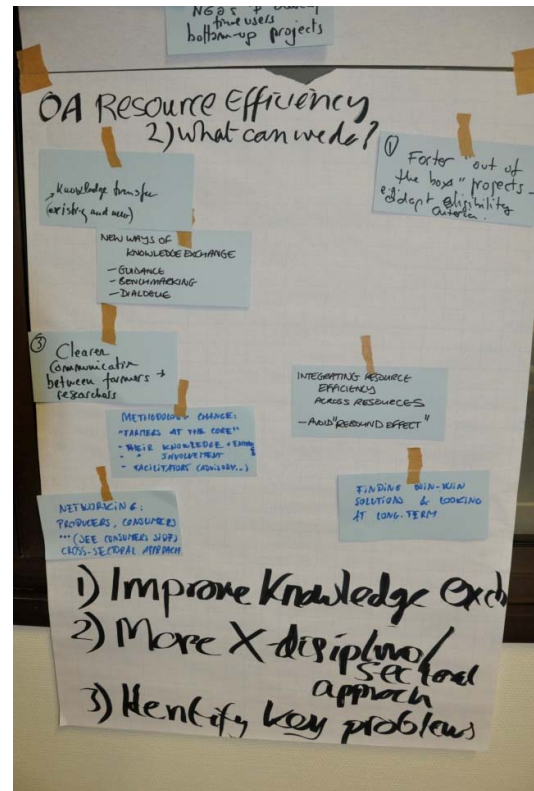 NGOs +
time users
bottom-up projects
OA Resource Efficiency
2) what can we do?
Knowledge transfer
(existing and new)
① Foster "out of
the boxs" projects -
adapt eligibility
criteria.
NEW WAYS OF
KNOWLEDGE EXCHANGE
- GUIDANCE
- BENCHMARKING
- DIALOGUE
③ Clearer
Communication
between farmers →
researchers
INTEGRATING RESOURCE
EFFICIENCY
ACROSS RESOURCES
- AVOID "REBOUND EFFECT"
METHODOLOGY CHANGE:
"FARMERS AT THE CORE"
- THEIR KNOWLEDGE
- " INVOLVEMENT
- FACILITATORS (ADVISORY...)
FINDING WIN-WIN
SOLUTIONS & LOOKING
AT LONG-TERM
NETWORKING:
PRODUCERS, CONSUMERS
... (SEE CONSUMERS SIDE)
CROSS-SECTORAL APPROACH
1) Improve Knowledge Exch
2) More X-disiplino/
Sectoral
approach
3) Identify key problems